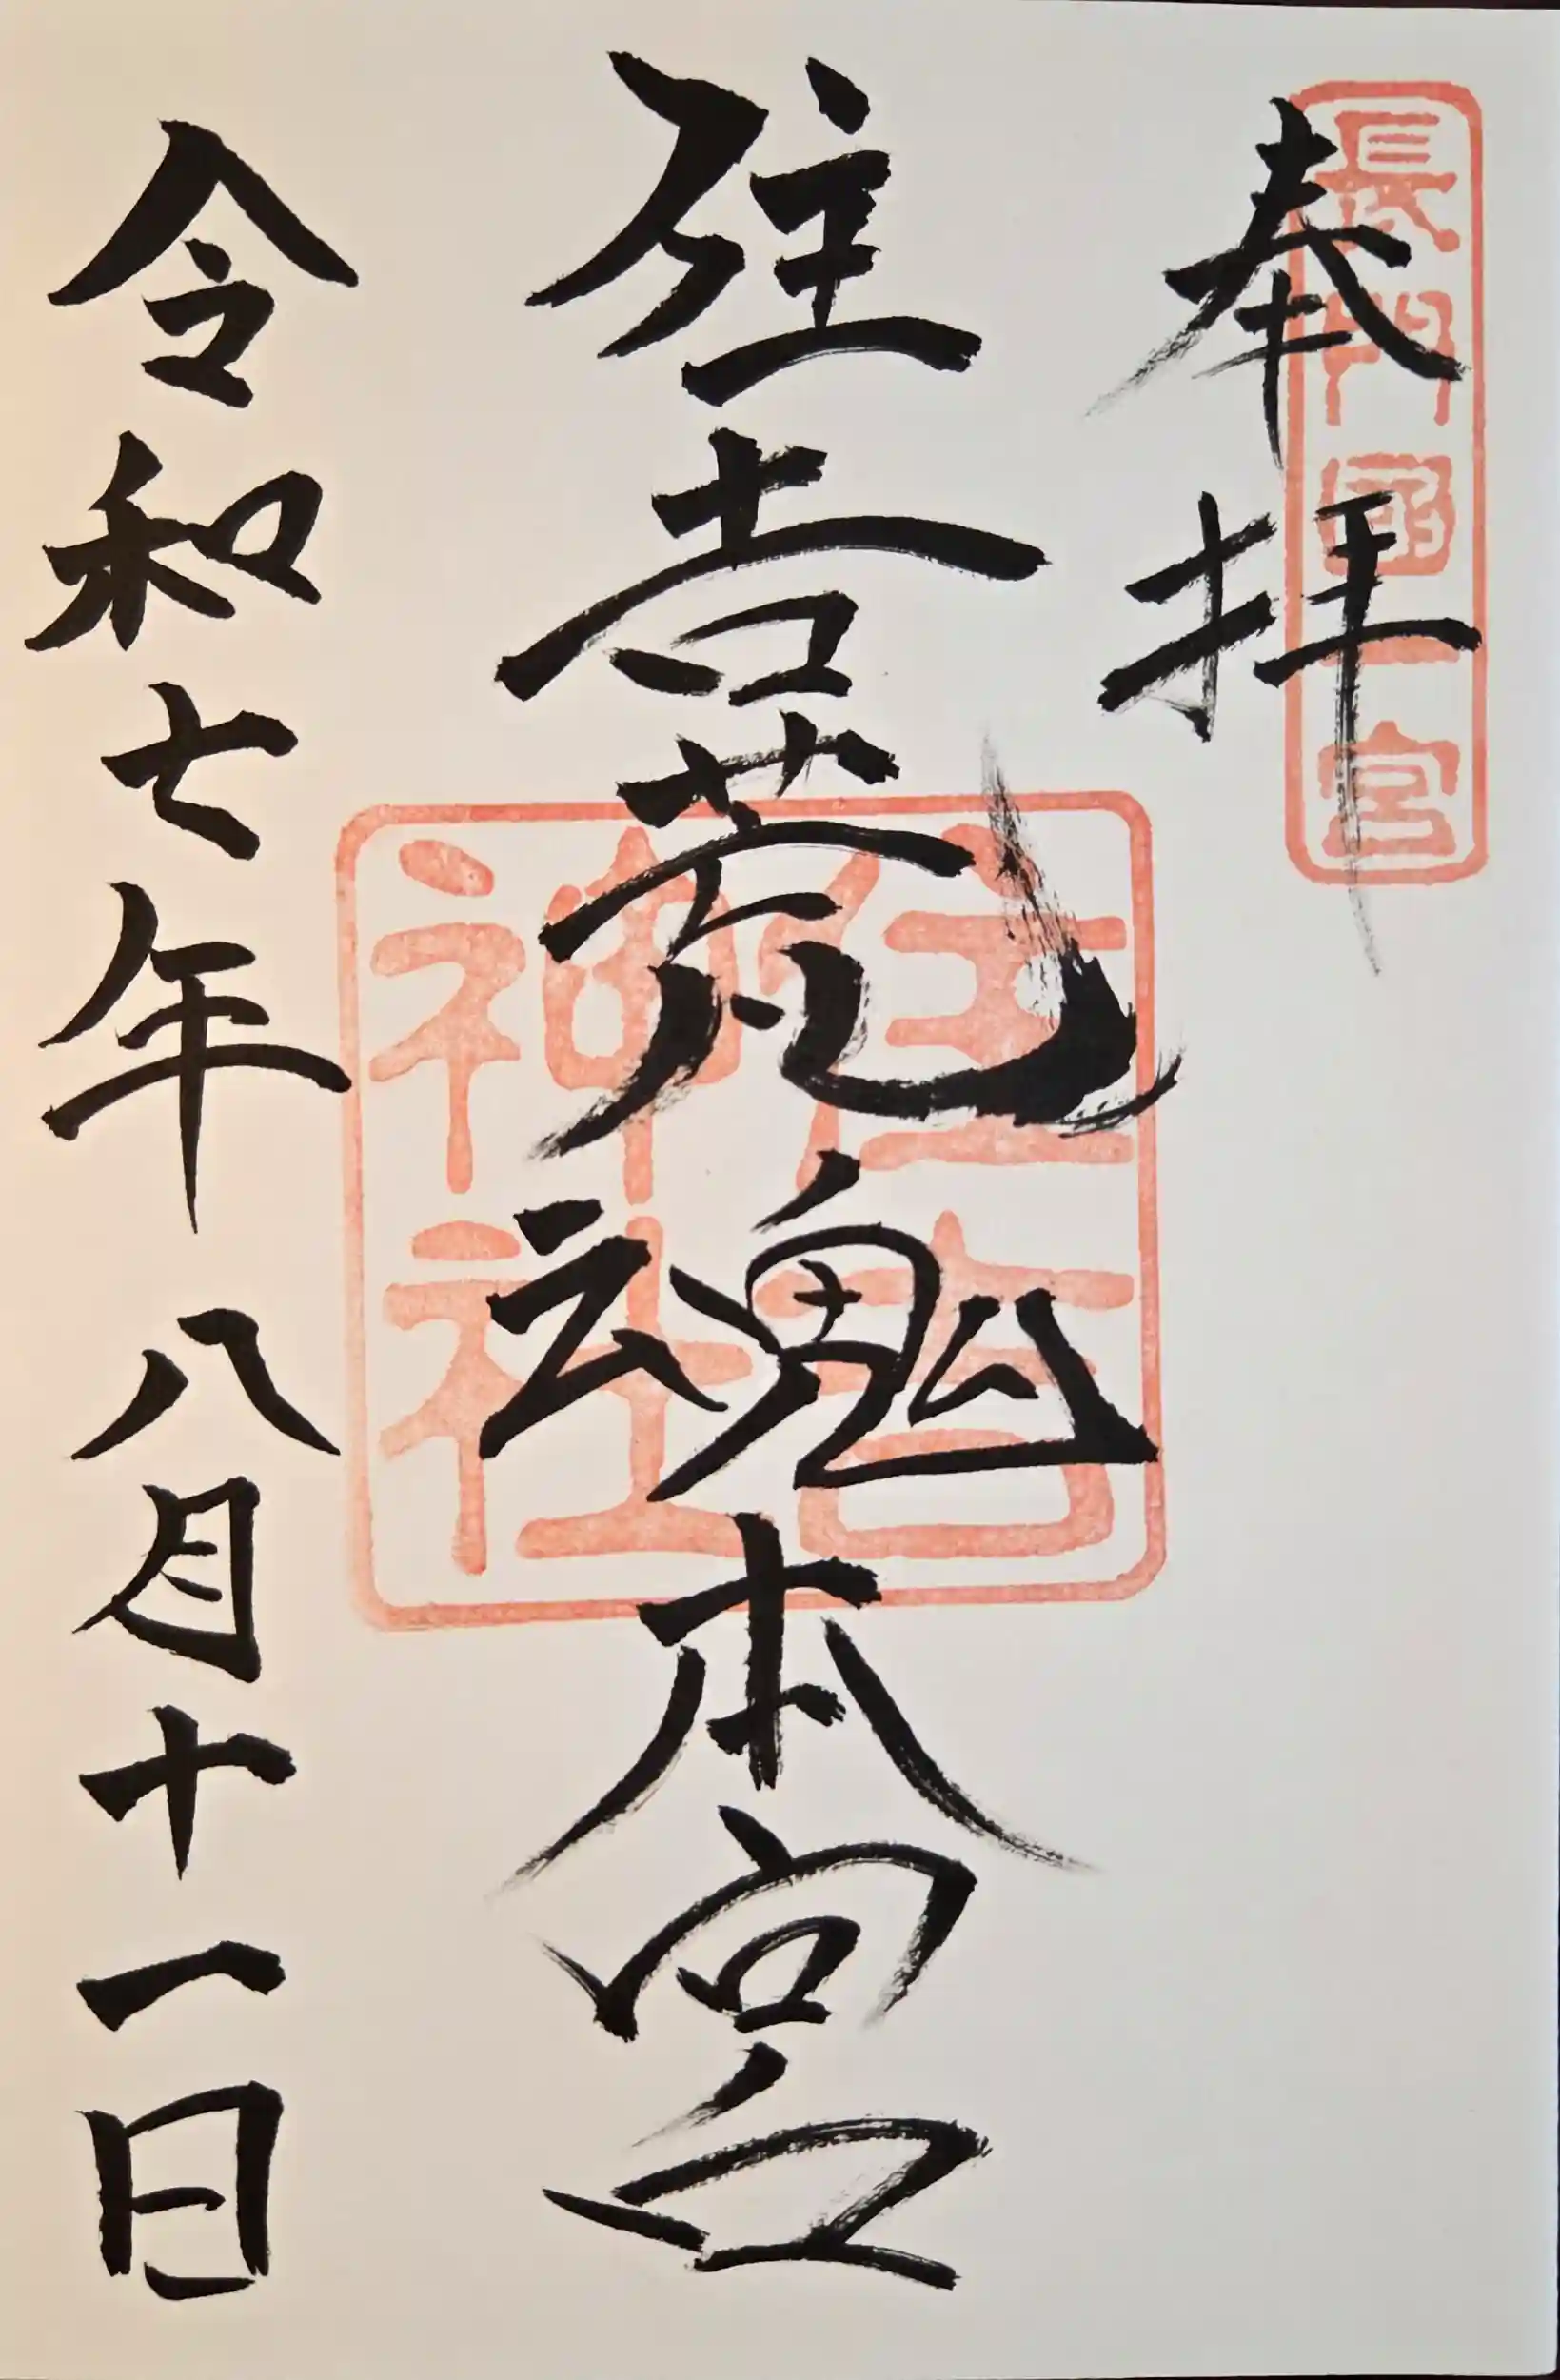 奉拝
長門國一宮
住吉荒魂本宮
住吉
神社
令和七年八月十一日